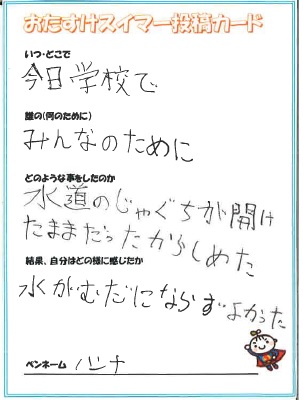 おたすけスイマー投稿カード
いつ・どこで
今日学校で
誰の(何のために)
みんなのために
どのような事をしたのか
水道のじゃぐちが開け
たままだったからしめた
結果、自分はどの様に感じたか
水がむだにならずよかった
ペンネーム ハンナ